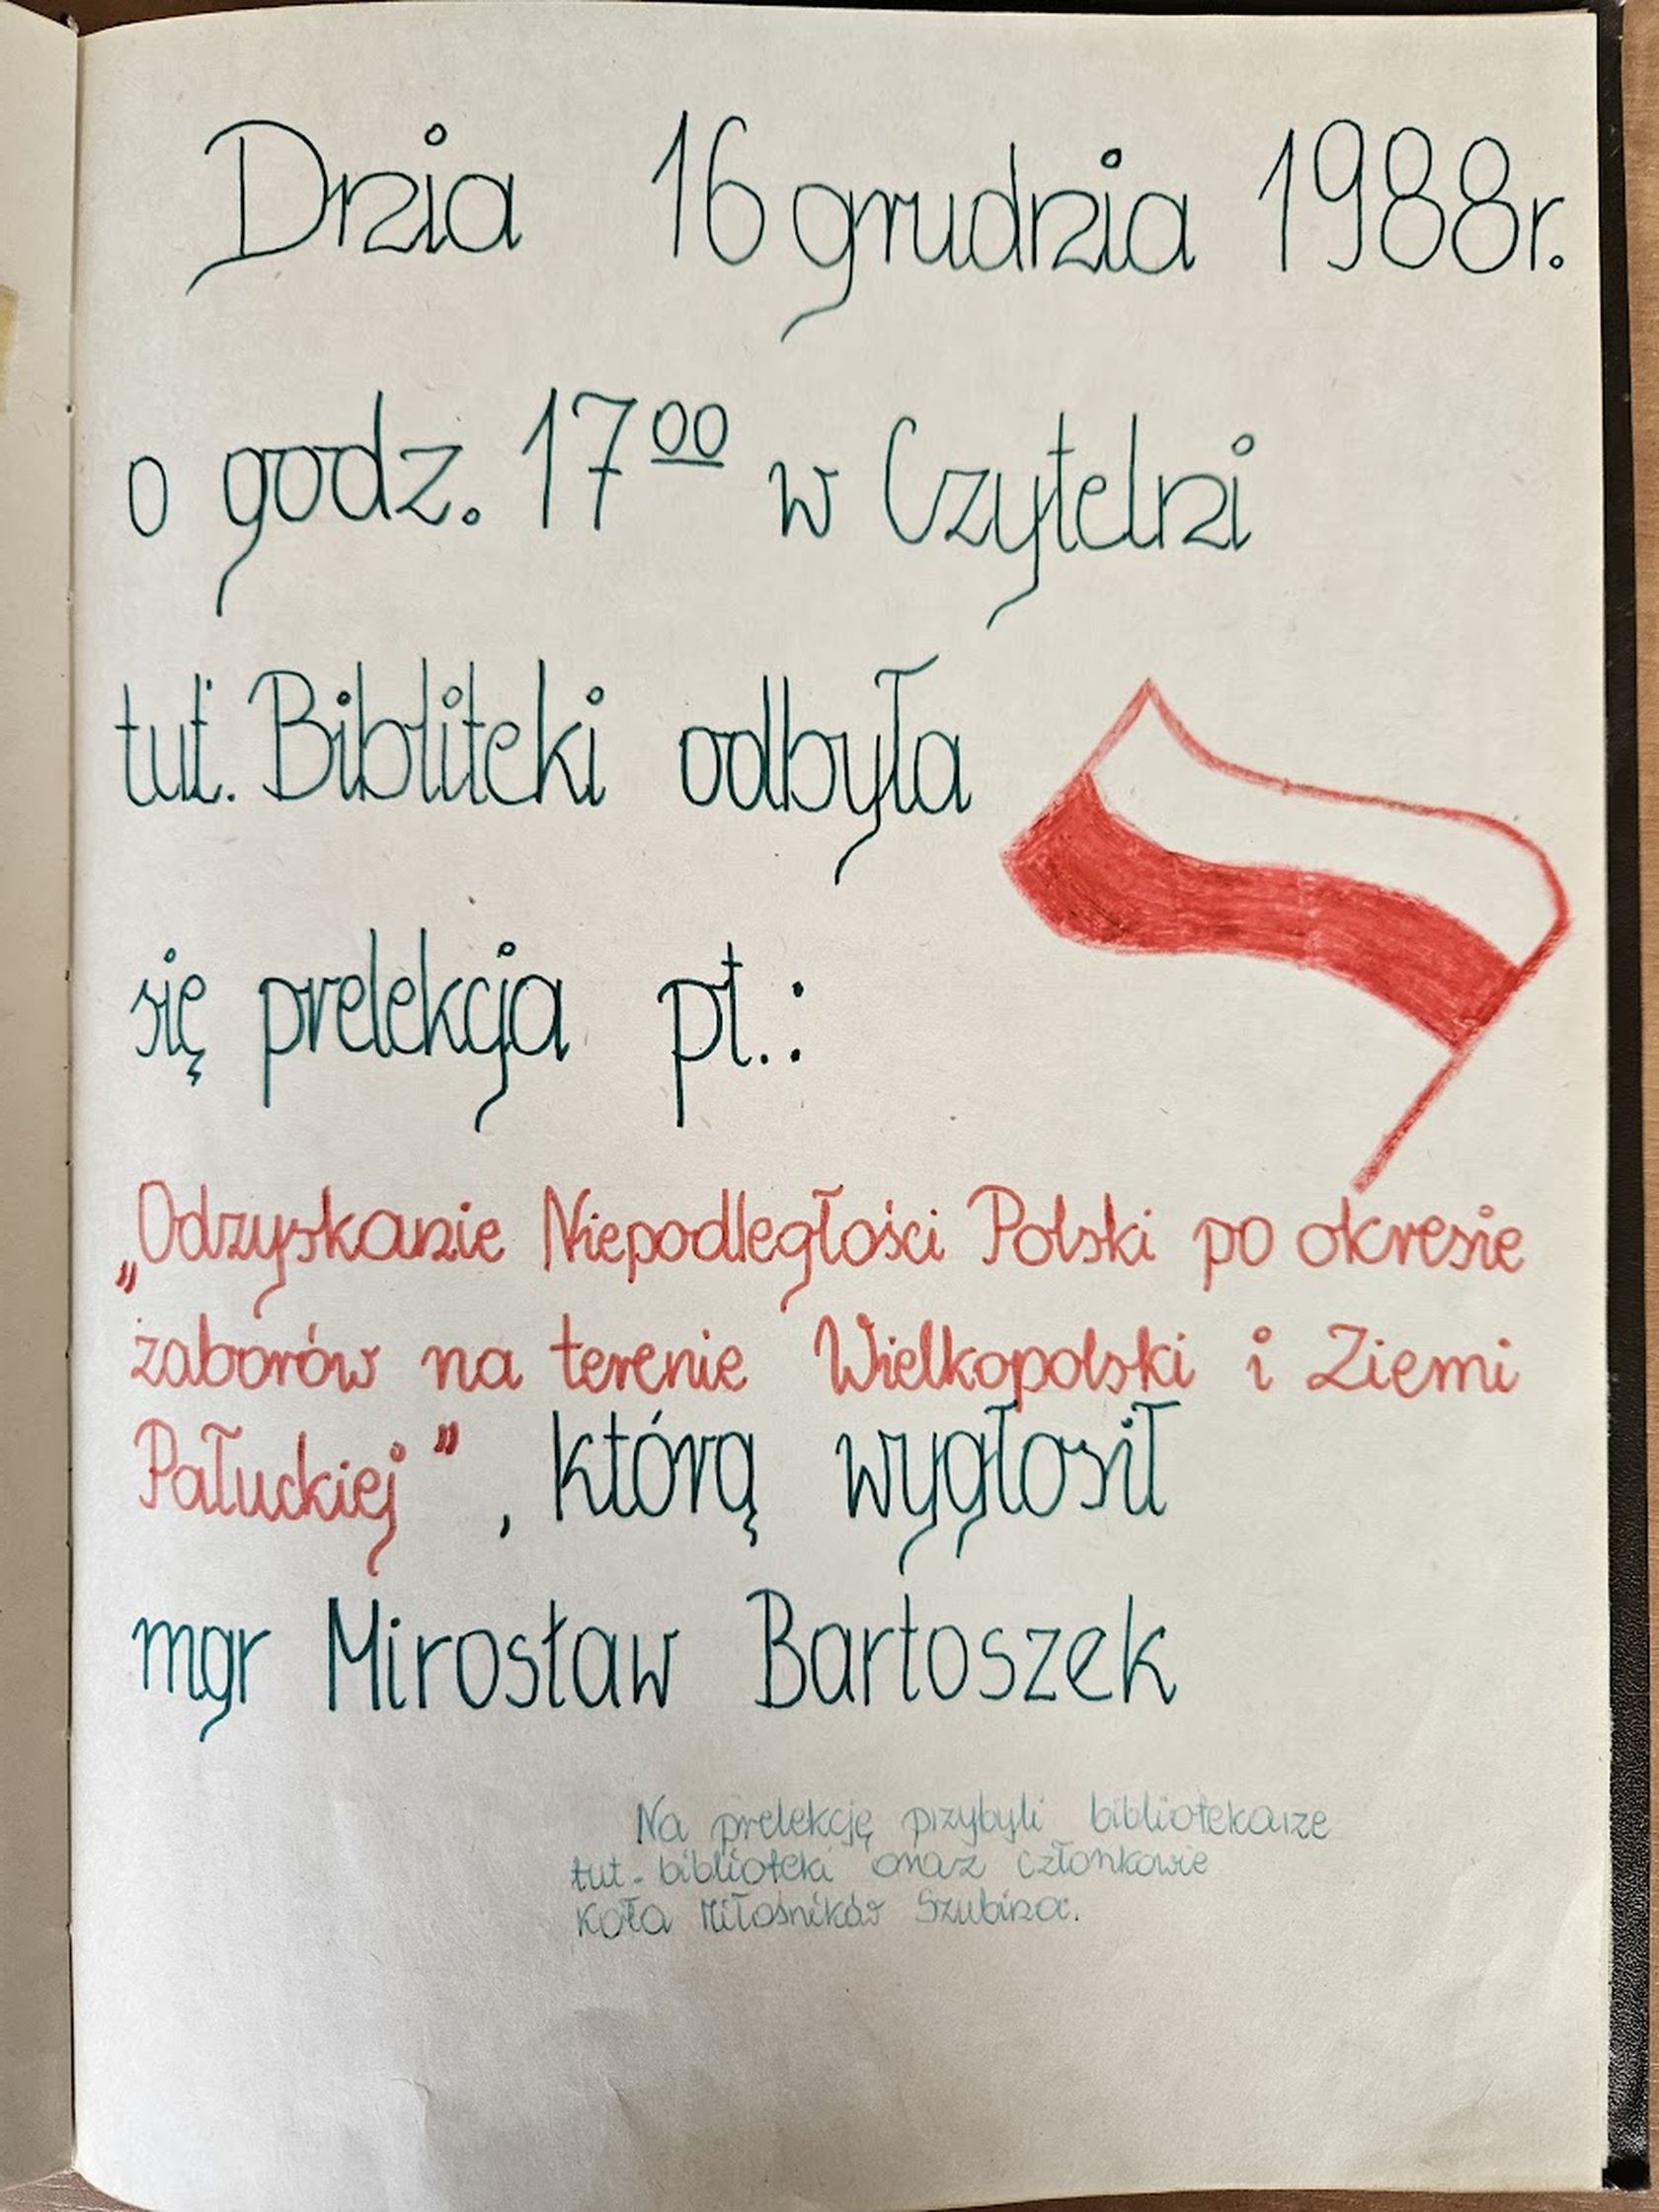 Dnia 16 grudnia 1988r.
o godz. 17⁰⁰ w Czytelni
tut. Bibliteki odbyła
się prelekcja pt.:
„Odzyskanie Niepodległości Polski po okresie
zaborów na terenie Wielkopolski i Ziemi
Pałuckiej", którą wygłosił
mgr Mirosław Bartoszek
Na prelekcję przybyli bibliotekarze
tut. biblioteki oraz członkowie
Koła Miłośników Szubina.